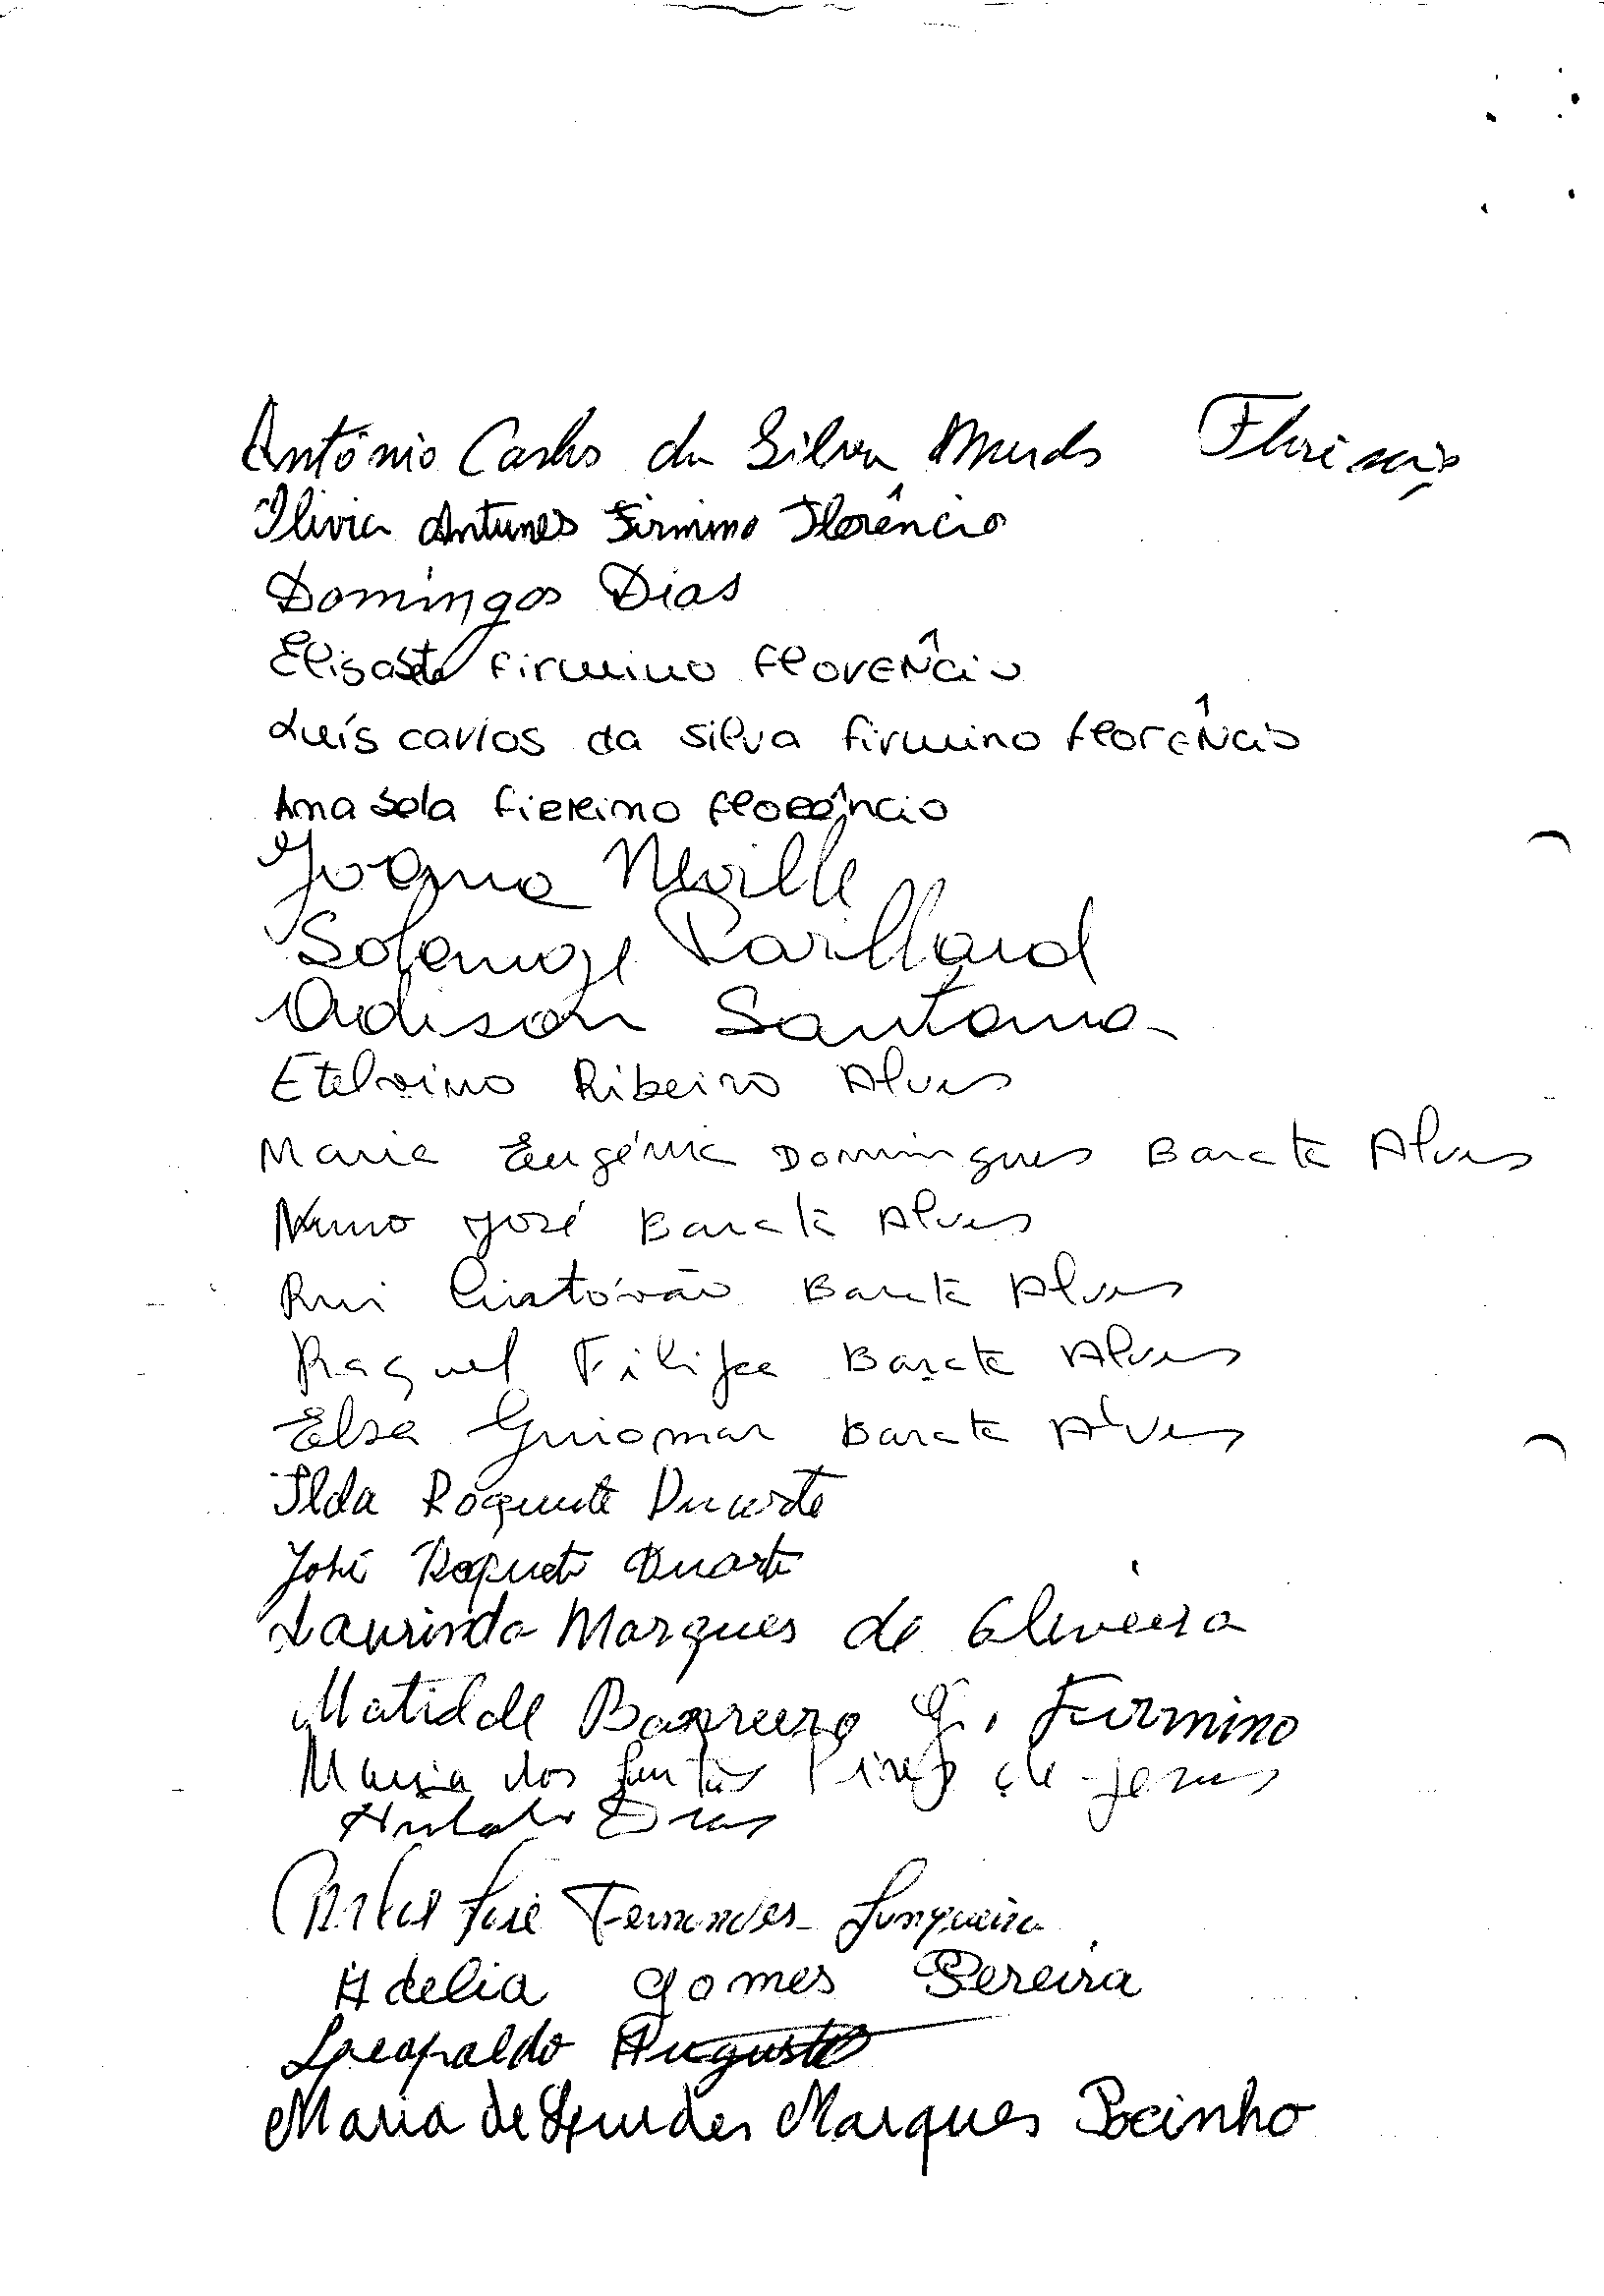 António Carlos da Silva Mendes Florêncio
Ilivia Antunes Firmino Florêncio
Domingos Dias
Elisabete Firmino Florêncio
Luís Carlos da Silva Firmino Florêncio
Ana Sofa Firmino Florêncio
Joana Neville
Solange Paillard
Adison Santana
Etelvino Ribeiro Alves
Maria Eugénia Domingues Barata Alves
Nuno José Barata Alves
Rui Cristóvão Barata Alves
Raquel Filipa Barata Alves
Elsa Guiomar Barata Alves
Ilda Roquete Duarte
José Roquete Duarte
Laurinda Marques de Oliveira
Matilde G. Firmino
Maria dos Santos Pires de Jesus
Dias
José Fernandes Junqueira
Adelia Gomes Pereira
Leopoldo Augusto
Maria de Lurdes Marques Pocinho